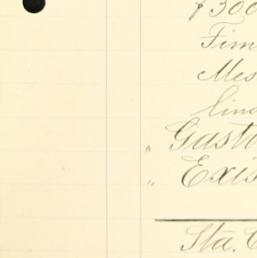 $300
Tim
Mes
lin
" Gasto
" Exis
Sta. C